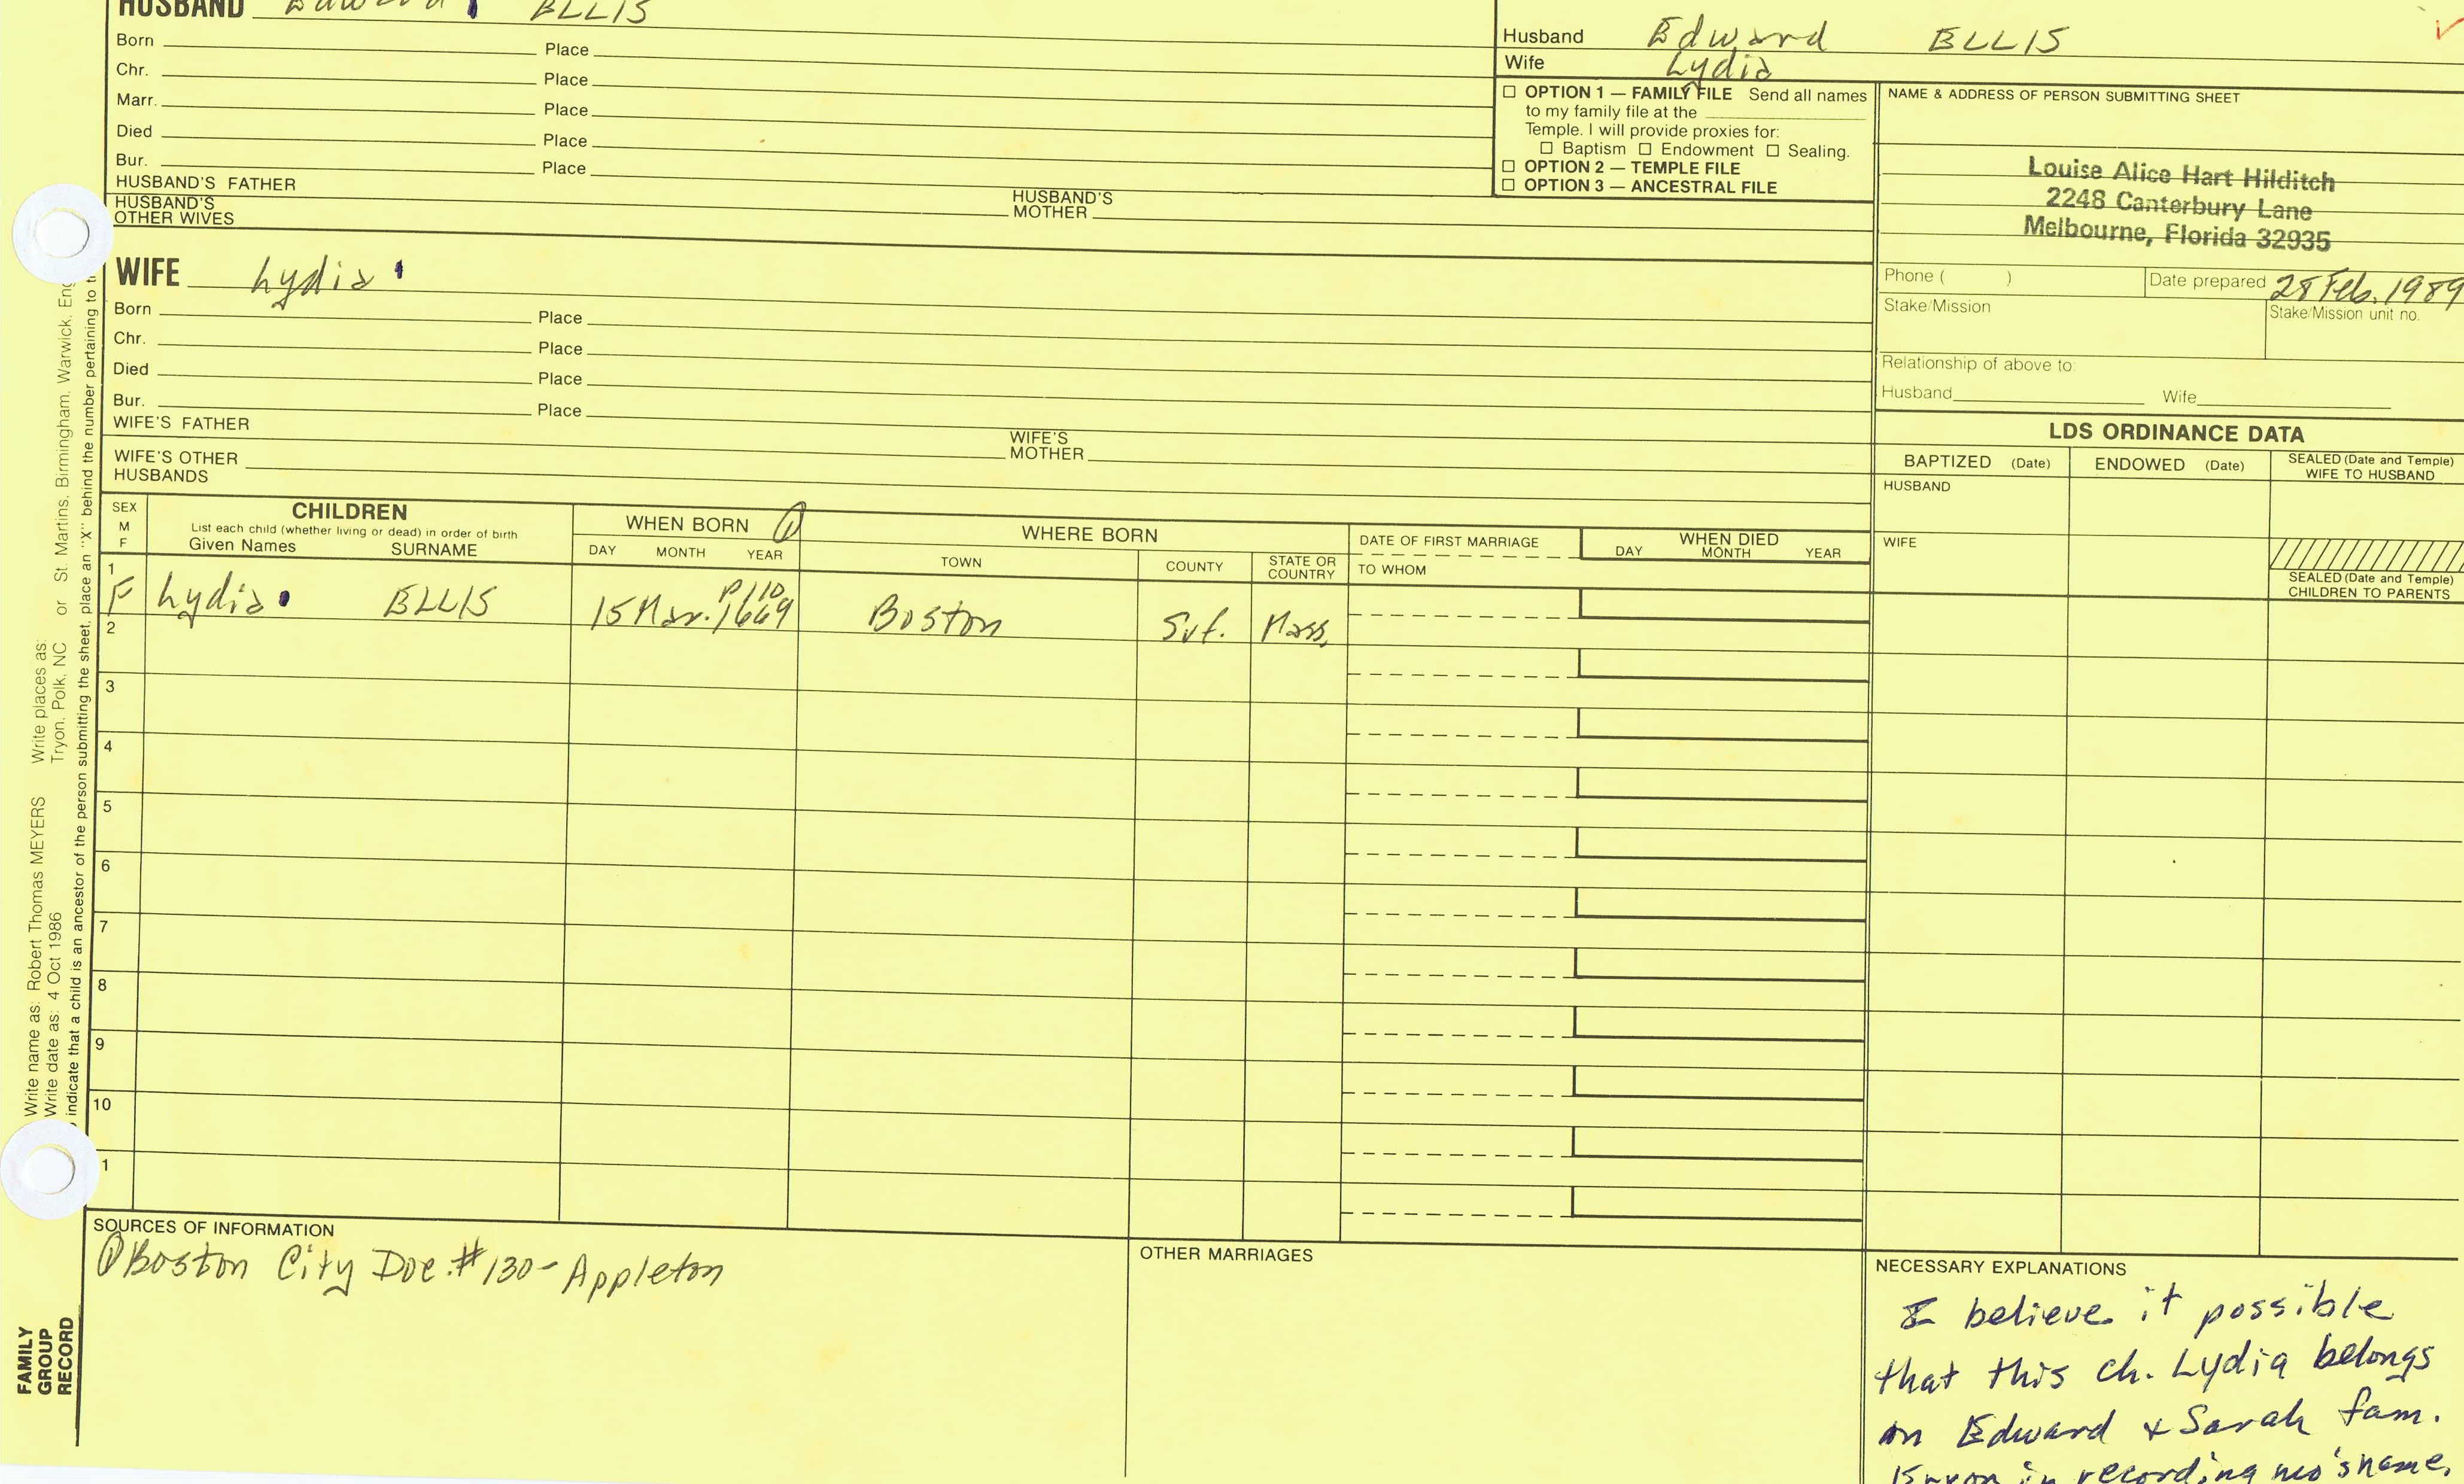 HUSBAND Edward ELLIS
Born Place
Chr. Place
Marr. Place
Died Place
Bur. Place
HUSBAND'S FATHER HUSBAND'S MOTHER
HUSBAND'S OTHER WIVES
WIFE Lydia
Born Place
Chr. Place
Died Place
Bur. Place
WIFE'S FATHER WIFE'S MOTHER
WIFE'S OTHER HUSBANDS
Husband Edward ELLIS
Wife Lydia
☐ OPTION 1 — FAMILY FILE Send all names
to my family file at the
Temple. I will provide proxies for:
☐ Baptism ☐ Endowment ☐ Sealing.
☐ OPTION 2 — TEMPLE FILE
☐ OPTION 3 — ANCESTRAL FILE
NAME & ADDRESS OF PERSON SUBMITTING SHEET
Louise Alice Hart Hilditch
2248 Canterbury Lane
Melbourne, Florida 32935
Phone ( ) Date prepared 28 Feb. 1989
Stake/Mission Stake/Mission unit no.
Relationship of above to:
Husband Wife
LDS ORDINANCE DATA
BAPTIZED (Date) ENDOWED (Date) SEALED (Date and Temple) WIFE TO HUSBAND
HUSBAND
WIFE
SEALED (Date and Temple)
CHILDREN TO PARENTS
SEX M F
CHILDREN
List each child (whether living or dead) in order of birth
Given Names SURNAME
WHEN BORN ①
DAY MONTH YEAR
WHERE BORN
TOWN COUNTY STATE OR COUNTRY
DATE OF FIRST MARRIAGE
TO WHOM
WHEN DIED
DAY MONTH YEAR
P110
1 F Lydia ELLIS 15 Mar. 1669 Boston Suf. Mass.
2
3
4
5
6
7
8
9
10
1
SOURCES OF INFORMATION
① Boston City Doc. #130 - Appleton
OTHER MARRIAGES
NECESSARY EXPLANATIONS
I believe it possible
that this ch. Lydia belongs
in Edward & Sarah fam.
Error in recording mo's name.
Write name as: Robert Thomas MEYERS Write places as:
Write date as: 4 Oct 1986 Tryon, Polk, NC or St. Martins, Birmingham, Warwick, Eng
indicate that a child is an ancestor of the person submitting the sheet, place an "X" behind the number pertaining to
FAMILY
GROUP
RECORD